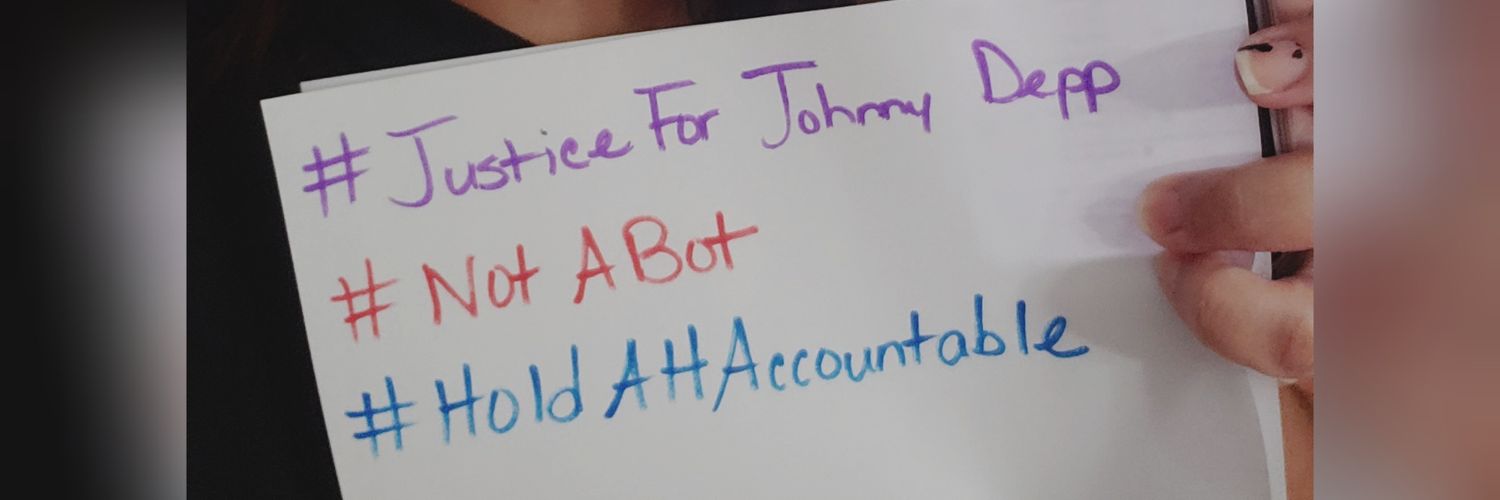 # Justice For Johnny Depp
# Not A Bot
# Hold AH Accountable